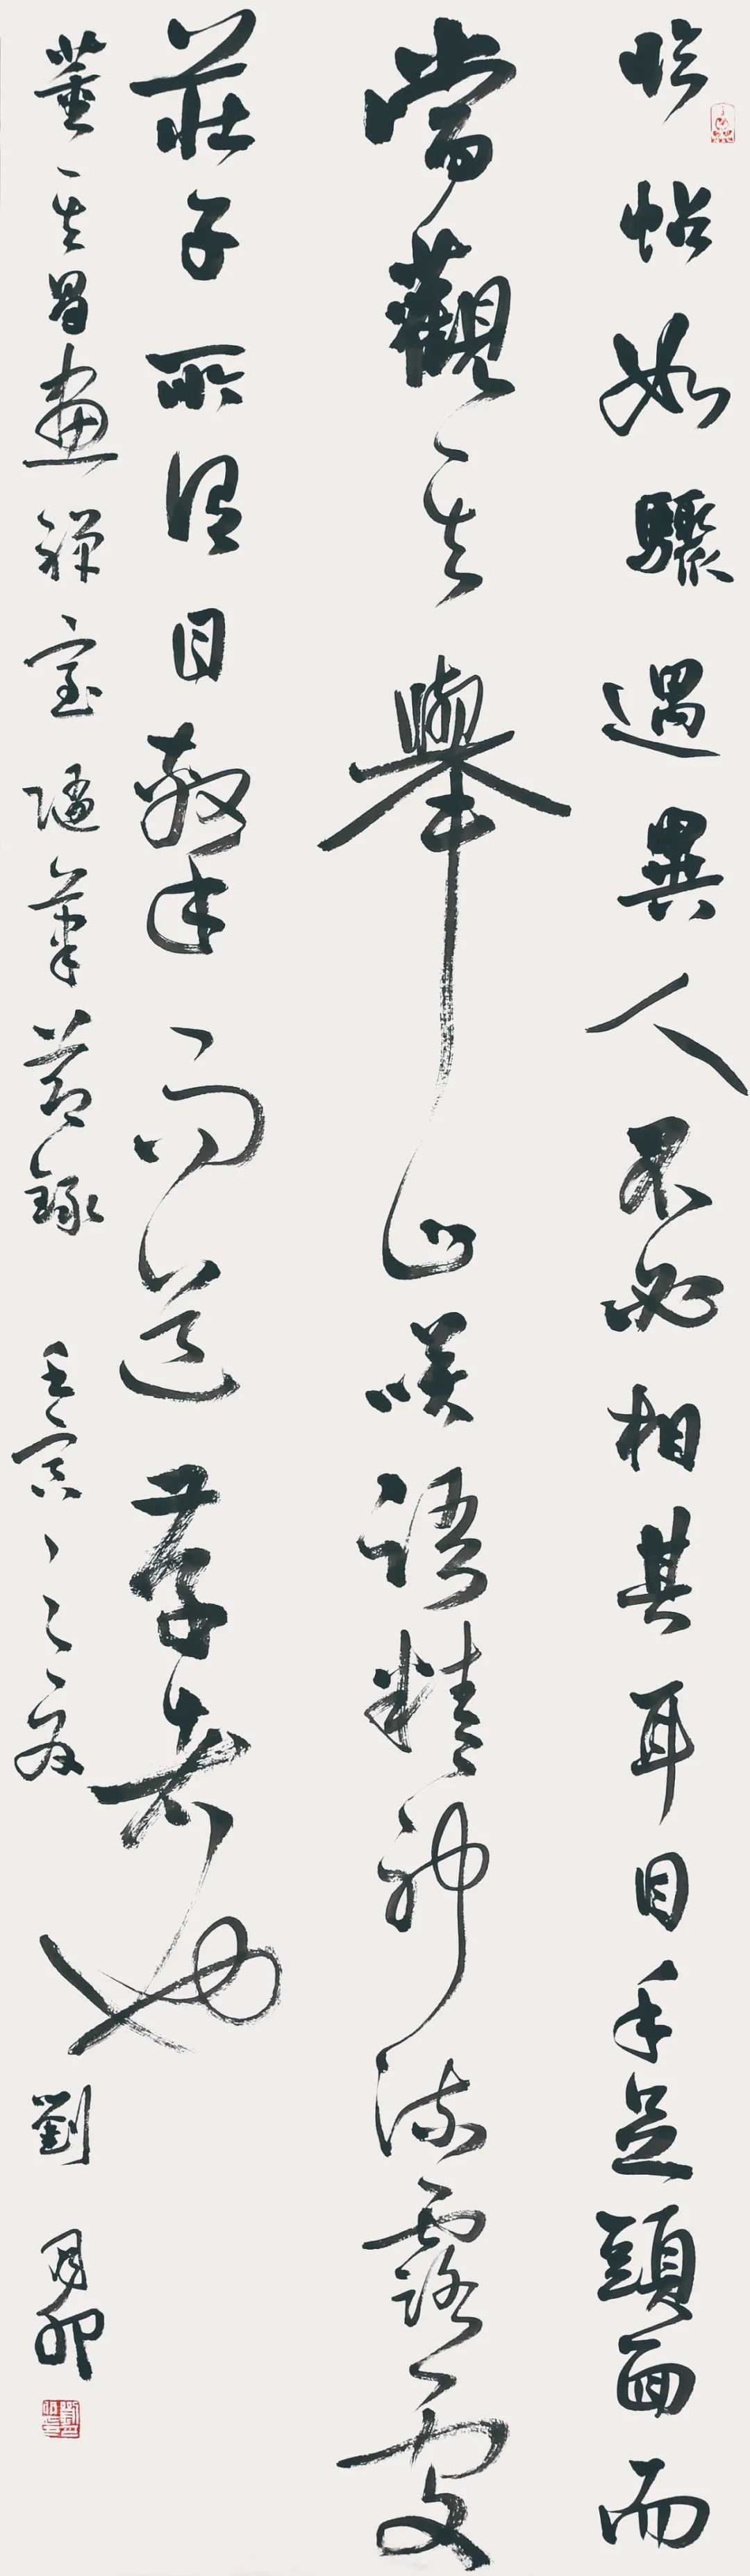 臨帖如驟遇異人不必相其耳目手足頭面而
當觀其舉止咲語精神流露處
莊子所謂目擊而道存者也
董其昌畫禪室隨筆節錄 壬寅之夏 劉月卯